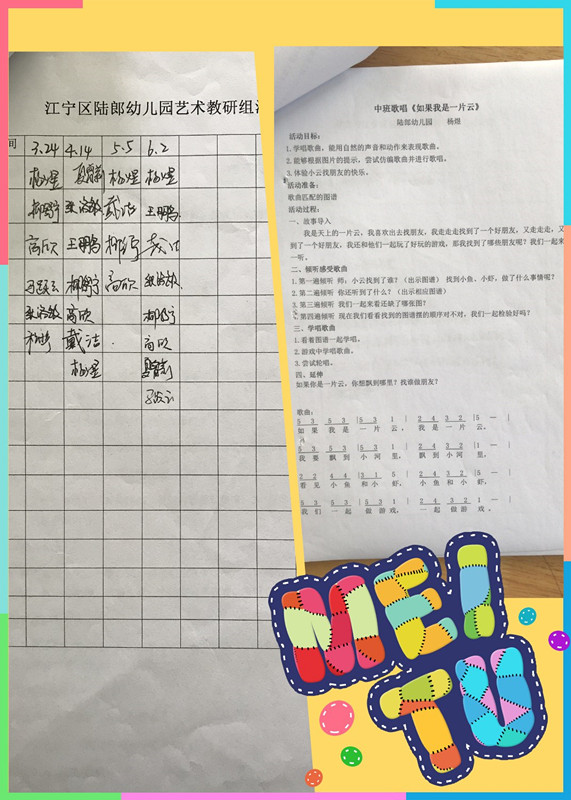 江宁区陆郎幼儿园艺术教研组活
间 3.24 4.14 5.5 6.2
杨煜 杨煜 杨煜
戴洁 王鹏
高欣 王鹏
高欣
高欣
戴洁 高欣
杨煜
中班歌唱《如果我是一片云》
陆郎幼儿园 杨煜
活动目标：
1.学唱歌曲，能用自然的声音和动作来表现歌曲。
2.能够根据图片的提示，尝试仿编歌曲并进行歌唱。
3.体验小云找朋友的快乐。
活动准备：
歌曲匹配的图谱
活动过程：
一、故事导入
我是天上的一片云，我喜欢出去找朋友，我走走走找到了一个好朋友，又走走走，又
到了一个好朋友，我还和他们一起玩了好玩的游戏，那我找了哪些朋友呢？我们一起来
一听。
二、倾听感受歌曲
1.第一遍倾听 师：小云找到了谁？（出示图谱） 找到小鱼、小虾，做了什么事情呢？
2.第二遍倾听 你还听到了什么？（出示相应图谱）
3.第三遍倾听 我们一起来看还缺了哪张图？
4.第四遍倾听 现在我们看看找到的图谱摆的顺序对不对，我们一起检验好吗？
三、学唱歌曲
1.看着图谱一起学唱。
2.游戏中学唱歌曲。
3.尝试轮唱。
四、延伸
如果你是一片云，你想飘到哪里？找谁做朋友？
歌曲：
5 3 5 3 |5 3 1 | 2 4 3 2 |5 — |
如 果 我 是 一 片 云， 我 是 一 片 云。
5 3 5 3 |5 3 1 | 2 4 3 2 |1 — |
我 要 飘 到 小 河 里， 飘 到 小 河 里，
2 2 4 4 |3 1 5 | 2 4 3 2 |5 — |
看 见 小 鱼 和 小 虾， 小 鱼 和 小 虾，
5 3 5 3 |5 3 1 | 2 4 3 2 1 — |
我 们 一 起 做 游 戏， 一 起 做 游 戏。
MEI
TU